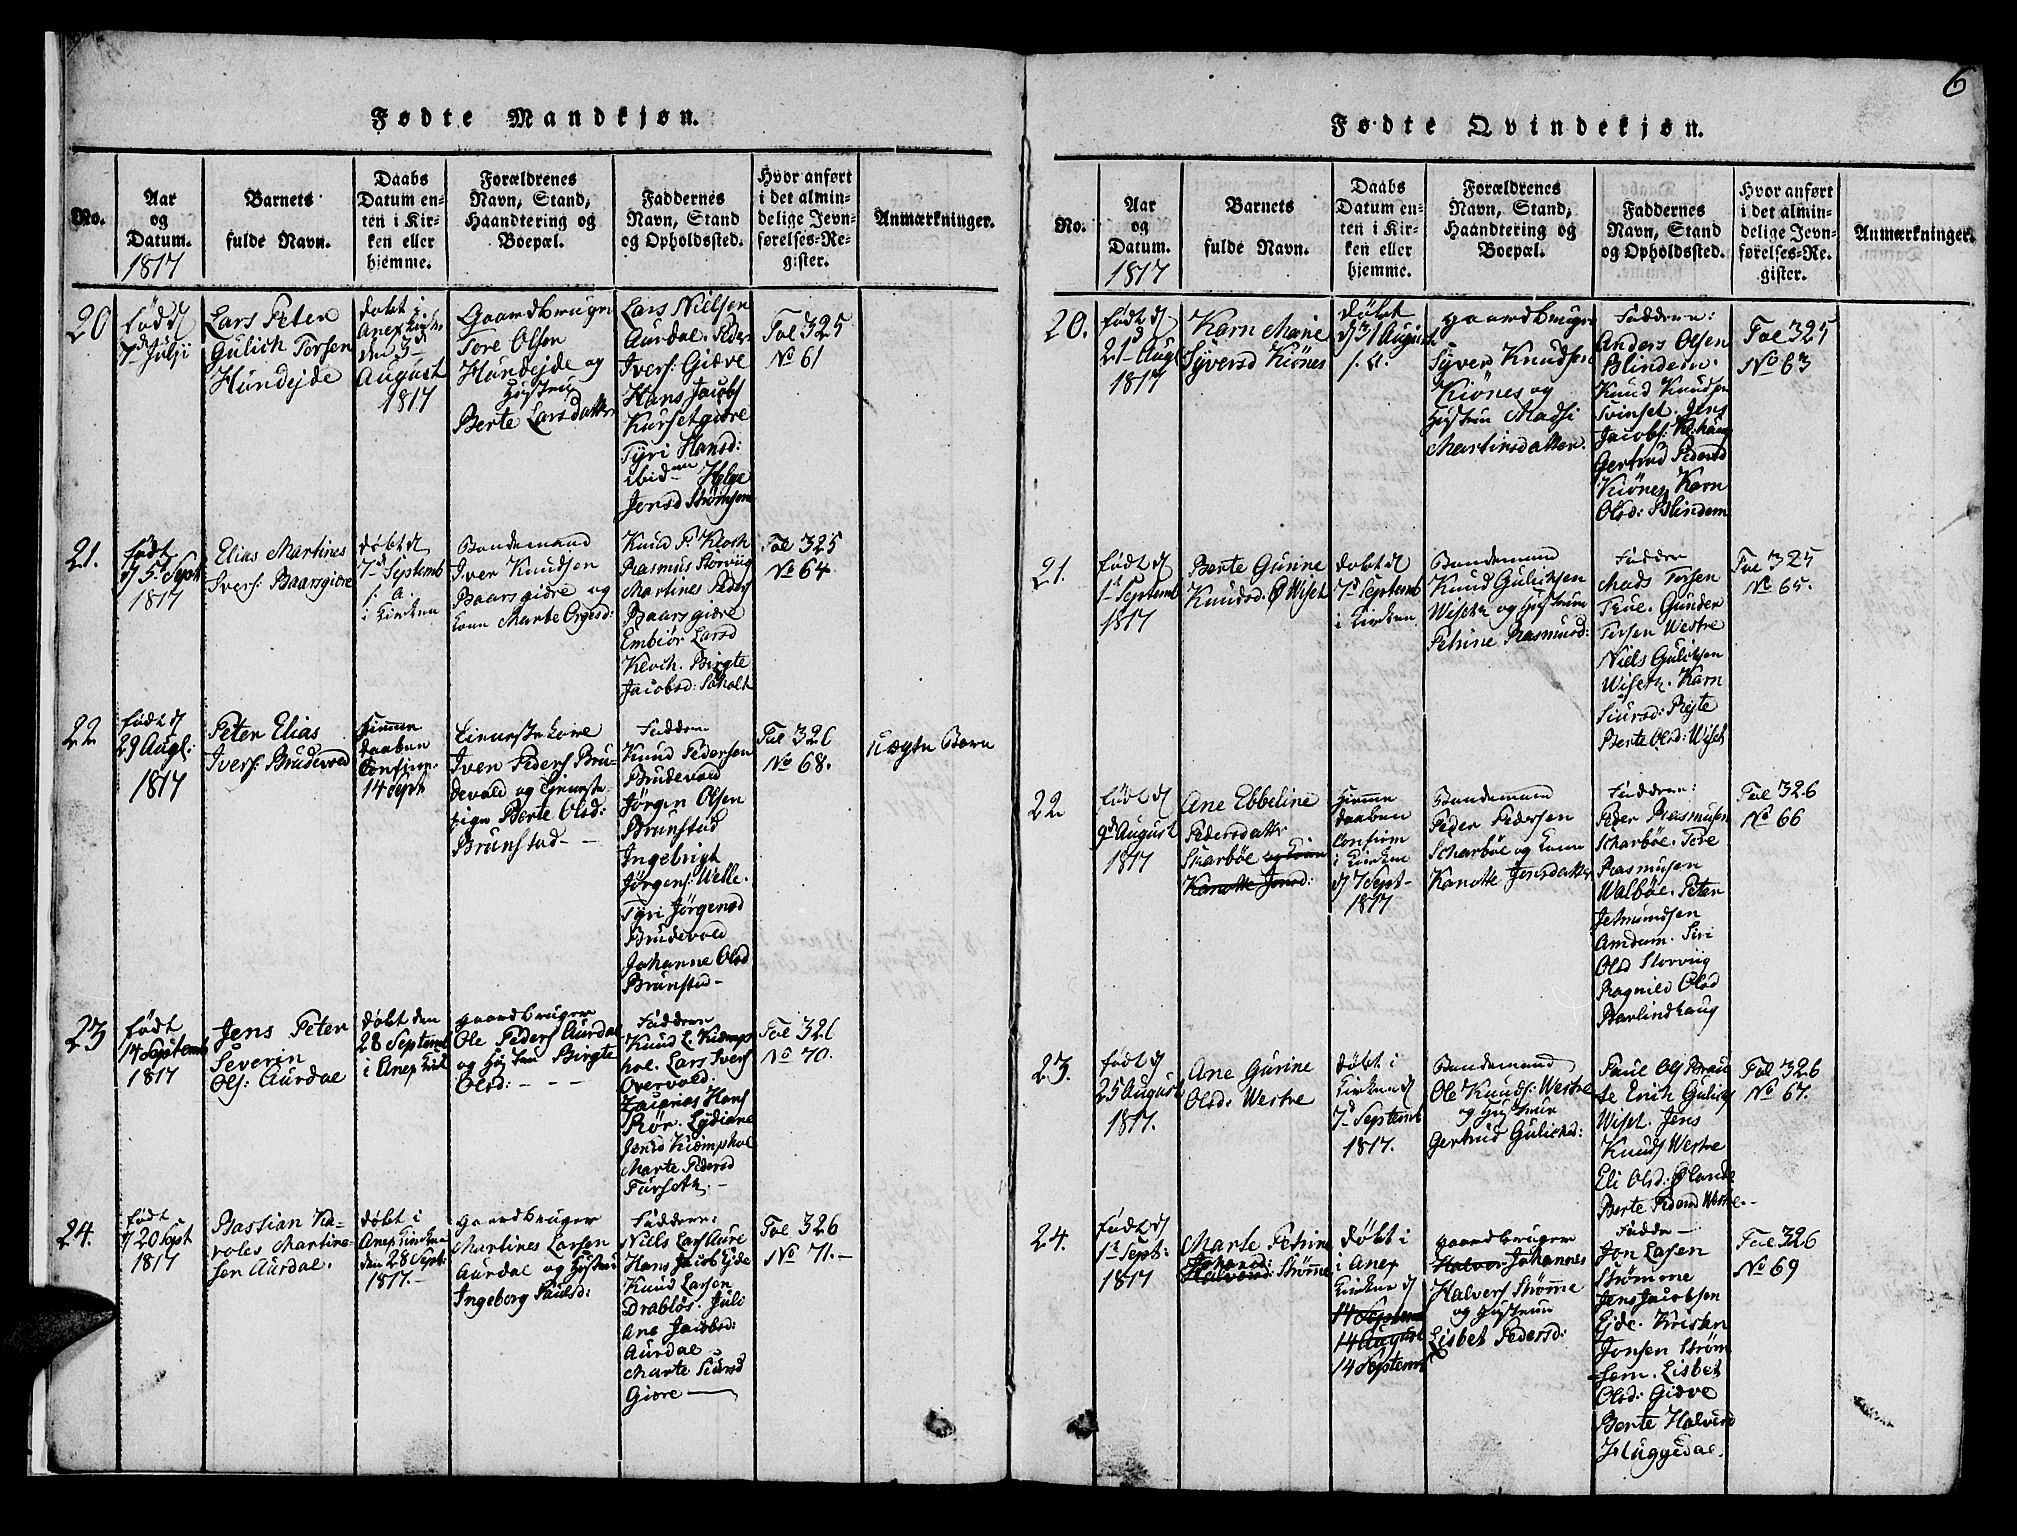 Fødte Mandkjøn.
No.
Aar
og
Datum.
1817
Barnets
fulde Navn.
Daabs
Datum en-
ten i Kir-
ken eller
hjemme.
Forældrenes
Navn, Stand,
Haandtering og
Boepæl.
Faddernes
Navn, Stand
og Opholdssted.
Hvor anført
i det almin-
delige Jevn-
førelses-Re-
gister.
Anmærkninger.
20
født d
7de Julii
Lars Peter
Gulich Torsen
Hundejde
døbt i
Anex Kirken
den 3d
August
1817
Gaardbruger
Tore Olsen
Hundejde og
Hustru
Berte Larsdatter
Lars Nielsen
Aurdal. Peder
Ivers: Giæve
Hans Jacobs
Kursetgiære
Tyri Hansd:
ibidem Helge
Jonsd Strømsem
Fol 325
No 61
21.
født
d 5 Sept:
1817
Elias Martines
Ivers: Baarsgiære
døbt d
7d Septemb
s. a.
i Kirken
Bondemand
Iver Knudsen
Baarsgiære og
Kone Marte Orgesd:
Knud P. Kloch
Rasmus Storviig
Martines Peders
Baarsgiøre
Embiør Larsd
Kloch. Birgte
Jacobsd: Søholt
Fol 325
No 64
22
født d
29 Augl:
1817
Peter Elias
Ivers: Brudevold
Himme
daaben
Confirm.
14 Sept
Tienestekarl
Iver Peders Bru-
devold og Tieneste
pige Berte Olsd:
Brunstad - -
Faddere
Knud Pedersen
Brudevold
Jørgen Olsen
Brunstad
Ingebrigt
Jørgens: Welle.
Tyri Jørgensd
Brudevold
Johanne Olsd
Brunstad -
Fol 326
No 68.
Uægte Barn
23
født
14 Septemb
1817
Jens Peter
Severin
Ols: Aurdal
døbt den
28 Septemb
i Anex Kirk
gaardbruger
Ole Peders Aurdal
og Hustru Birgte
Olsd: - - -
Faddere
Knud L. Kiemps
hol. Lars Ivers
Overvold.
Zacarias Hans
Rør. Lydiane
Jensd Kiempshol
Marte Pedersd
Furseth. -
Fol 326
No 70.
24.
født
d 20 Sept
1817
Bastian Ka-
roles Martine-
sen Aurdal.
døbt i
Anex Kirken
den 28 Sept:
1817. -
gaardbruger
Martines Larsen
Aurdal og Hustru
Ingeborg Paulsd:
Faddere:
Niels Lars Aure
Hans Jacob Ejde
Knud Larsen
Drabløs. Juli
Ane Jacobsd:
Aurdal.
Marte Siursd
Giøre -
Fol 326
No 71. -
6
Fødte Qvindekjøn.
No.
Aar
og
Datum.
1817
Barnets
fulde Navn.
Daabs
Datum en-
ten i Kir-
ken eller
hjemme.
Forældrenes
Navn, Stand,
Haandtering og
Boepæl.
Faddernes
Navn, Stand
og Opholdssted.
Hvor anført
i det almin-
delige Jevn-
førelses-Re-
gister.
Anmærkninger.
20.
født d
21d Augl
1817
Karn Marie
Syversd Kiønes
Døbt
d 31 August
s. a.
gaardbruger
Syver Knudsen
Kiønes og
Hustru Madsi
Martinsdatter.
Faddere:
Anders Olsen
Blindem.
Knud Knudsen
Svinset. Jens
Jacobs:
Gertrud Pedersd
Kiønes Karn
Olsd: Blindem
Fol 325
No 63
21.
født d
1d Septemb
1817
Berte Gurine
Knudsd. Ø Wiset
døbt d
7d Septemb
i Kirken
Bondemand
Knud Gulichsen
Wiseth og Hustrue
Petrine Rasmusd:
Faddere
Mads Torsen
True. Gunder
Torsen Westre
Niels Gulichsen
Wiseth. Karn
Siursd: Rejte
Berte Olsd: Wiset
Fol 325
No 65.
22
født d
9d August
1817
Ane Ebbeline
Pedersdatter
Skarbøe og Kone
Kanutte Jensd:
Himme
daaben
Confirm
i Kirken
d 7 Sept -
1817
Bondemand
Peder Pedersen
Scharbøe og Kone
Kanutte Jensdatter
Faddere:
Peder Rasmusen
Scharbøe. Tore
Rasmusen
Walbøe. Peter
Jetmundsen
Amdam. Siri
Olsd Storviig
Ragnild Olsd
Farlindhaug
Fol 326
No 66
23.
født d
25 August
1817.
Ane Gurine
Olsd: Westre
døbt i
Kirken d
7d Septemb
1817.
Bondemand
Ole Knuds: Westre
og Hustrue
Gertrud Gulichsd:
Paul Ols Brau
te Erich Gulichs
Wiset. Jens
Knuds Westre
Eli Olsd: Ølande
Berte Pedersd Westre
Fol 326
No 67.
24.
født d
1d Sept:
1817
Marte Petrine
Johansd:
Halvorsd: Strømme
døbt i
i Anex
Kirken d
14 Septemb
14 August
14 Septemb
gaardbruger
Halvor Johannes
Halvers Strømme
og Hustrue
Lisbet Pedersd:
Fadde -
Jon Larsen
Strømme
Jens Jacobsen
Ejde. Kristen
Jonsen Strøm
sem. Lisbet
Olsd: Giæve
Berte Halvorsd
Huggedal.
Fol 326
No 69